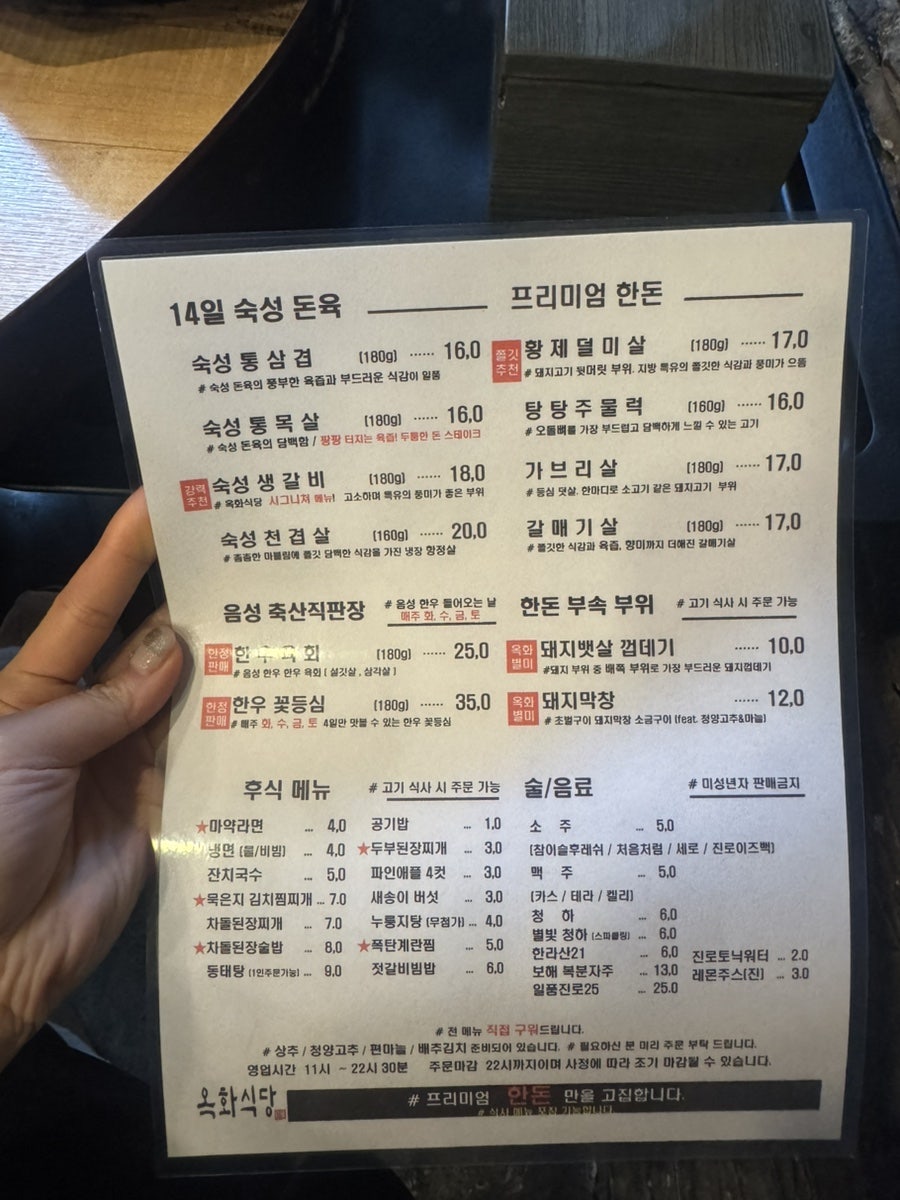 14일 숙성 돈육
숙성 통삼겹 (180g) ······ 16,0
# 숙성 돈육의 풍부한 육즙과 부드러운 식감이 일품
숙성 통목살 (180g) ······ 16,0
# 숙성 돈육의 담백함 / 팡팡 터지는 육즙! 두툼한 돈 스테이크
강력추천 숙성 생갈비 (180g) ······ 18,0
# 옥화식당 시그니쳐 메뉴! 고소하며 특유의 풍미가 좋은 부위
숙성 천겹살 (160g) ······ 20,0
# 촘촘한 마블링에 쫄깃 담백한 식감을 가진 냉장 항정살
프리미엄 한돈
쫄깃추천 황제덜미살 (180g) ······ 17,0
# 돼지고기 뒷머릿 부위. 지방 특유의 쫄깃한 식감과 풍미가 으뜸
탕탕주물럭 (160g) ······ 16,0
# 오돌뼈를 가장 부드럽고 담백하게 느낄 수 있는 고기
가브리살 (180g) ······ 17,0
# 등심 덧살. 한마디로 소고기 같은 돼지고기 부위
갈매기살 (180g) ······ 17,0
# 쫄깃한 식감과 육즙, 향미까지 더해진 갈매기살
음성 축산직판장
# 음성 한우 들어오는 날
매주 화, 수, 금, 토
한정판매 한우육회 (180g) ······ 25,0
# 음성 한우 한우 육회 [ 설깃살 , 삼각살 ]
한정판매 한우 꽃등심 (180g) ······ 35,0
# 매주 화, 수, 금, 토 4일만 맛볼 수 있는 한우 꽃등심
한돈 부속 부위 # 고기 식사 시 주문 가능
옥화별미 돼지뱃살 껍데기 ······ 10,0
#돼지 부위 중 배쪽 부위로 가장 부드러운 돼지껍데기
옥화별미 돼지막창 ······ 12,0
# 초벌구이 돼지막창 소금구이 (feat. 청양고추&마늘)
후식 메뉴 # 고기 식사 시 주문 가능
★마약라면 ... 4,0
냉면 (물/비빔) ... 4,0
잔치국수 ... 5,0
★묵은지 김치찜찌개 ... 7.0
차돌된장찌개 ... 7.0
★차돌된장술밥 ... 8,0
동태탕 (1인주문가능) ... 9.0
공기밥 ... 1,0
★두부된장찌개 ... 3,0
파인애플 4컷 ... 3,0
새송이 버섯 ... 3.0
누룽지탕 (무첨가) ... 4,0
★폭탄계란찜 ... 5.0
젓갈비빔밥 ... 6,0
술/음료 # 미성년자 판매금지
소 주 ... 5.0
(참이슬후레쉬 / 처음처럼 / 새로 / 진로이즈백)
맥 주 ... 5,0
(카스 / 테라 / 켈리)
청 하 ... 6,0
별빛 청하 (스파클링) ... 6.0
한라산21 ... 6,0
보해 복분자주 ... 13,0
일품진로25 ... 25.0
진로토닉워터 ... 2.0
레몬주스(진) ... 3.0
# 전 메뉴 직접 구워드립니다.
# 상추 / 청양고추 / 편마늘 / 배추김치 준비되어 있습니다. # 필요하신 분 미리 주문 부탁 드립니다.
영업시간 11시 ~ 22시 30분 주문마감 22시까지이며 사정에 따라 조기 마감될 수 있습니다.
옥화식당
# 프리미엄 한돈 만을 고집합니다.
# 식사 메뉴 포장 가능합니다.